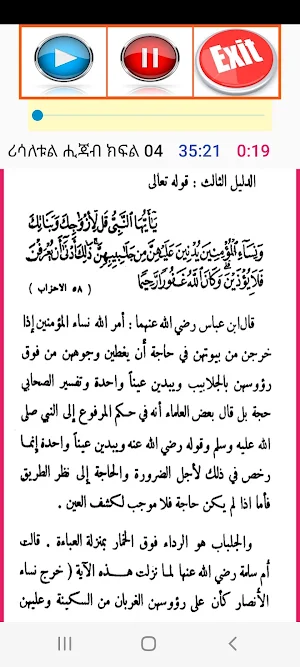 Exit
ሪሳለቱል ሒጃብ ክፍል 04 35:21 0:19
الدليل الثالث : قوله تعالى
يَٰٓأَيُّهَا ٱلنَّبِىُّ قُل لِّأَزْوَٰجِكَ وَبَنَاتِكَ
وَنِسَآءِ ٱلْمُؤْمِنِينَ يُدْنِينَ عَلَيْهِنَّ مِن جَلَٰبِيبِهِنَّ ذَٰلِكَ أَدْنَىٰٓ أَن يُعْرَفْنَ
فَلَا يُؤْذَيْنَ وَكَانَ ٱللَّهُ غَفُورًا رَّحِيمًا ( ٥٨ الاحزاب )
قال ابن عباس رضي الله عنهما : أمر الله نساء المؤمنين إذا
خرجن من بيوتهن في حاجة أن يغطين وجوههن من فوق
رؤوسهن بالجلابيب ويبدين عيناً واحدة وتفسير الصحابي
حجة بل قال بعض العلماء أنه في حكم المرفوع إلى النبي صلى
الله عليه وسلم وقوله رضي الله عنه ويبدين عيناً واحدة إنما
رخص في ذلك لأجل الضرورة والحاجة إلى نظر الطريق
فأما اذا لم يكن حاجة فلا موجب لكشف العين .
والجلباب هو الرداء فوق الخمار بمنزلة العباءة . قالت
أم سلمة رضي الله عنها لما نزلت هذه الآية ( خرج نساء
الأنصار كأن على رؤوسهن الغربان من السكينة وعليهن